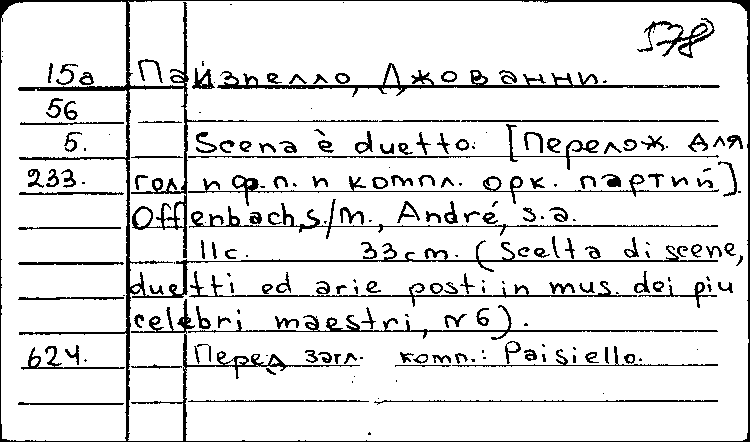 578
15a Паизпелло, Джованни.
56
5. Scena è duetto. [Перелож. для
233. гол. и ф.п. и компл. орк. партий].
Offenbach, s/m., André, s.a.
11с. 33cm. (Scelta di scene,
duetti ed arie posti in mus. dei piu
celebri maestri, № 6).
624. Перед загл. комп.: Paisiello.